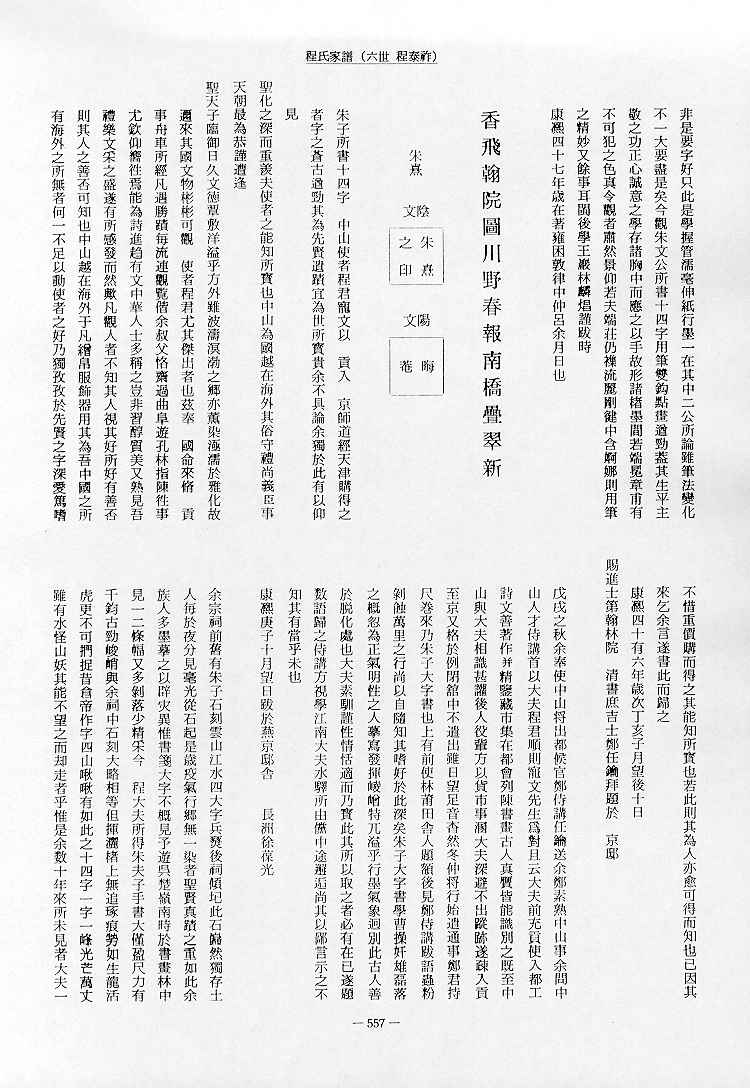 程氏家譜（六世　程泰祚）
非是要字好只此是學握管濡毫伸紙行墨一在其中二公所論雖筆法變化
不一大要盡是矣今觀朱文公所書十四字用筆雙鈎點畫遒勁蓋其生平主
敬之功正心誠意之學存諸胸中而應之以手故形諸楮墨間若端冕章甫有
不可犯之色真令觀者肅然景仰若夫端莊仍襍流麗剛健中含婀娜則用筆
之精妙又餘事耳閩後學王巖林麟焻謹跋時
康熙四十七年歲在著雍困敦律中仲呂余月日也
香飛翰院圖川野春報南橋疊翠新
朱熹
陰文
朱熹之印
陽文
晦菴
朱子所書十四字　中山使者程君寵文以　貢入　京師道經天津購得之
者字之蒼古遒勁其為先賢遺蹟宜為世所寶貴余不具論余獨於此有以仰
見
聖化之深而重羨夫使者之能知所寶也中山為國越在海外其俗守禮尚義臣事
天朝最為恭謹遭逢
聖天子臨御日久文德覃敷洋溢乎方外雖波濤溟渤之鄉亦薰染極濡於雅化故
邇來其國文物彬彬可觀　使者程君尤其傑出者也茲奉　國命來脩　貢
事舟車所經凡遇勝蹟每流連觀覽偕余叔父恪齋過曲阜遊孔林指陳徃事
尤欽仰嚮徃焉能為詩進趨有文中華人士多稱之豈非習醇質美又熟見吾
禮樂文采之盛遂有所感發而然歟凡觀人者不知其人視其好所好有善否
則其人之善否可知也中山越在海外于凡繒帛服飾器用其為吾中國之所
有海外之所無者何一不足以動使者之好乃獨孜孜於先賢之字深愛篤嗜
不惜重價購而得之其能知所寶也若此則其為人亦愈可得而知也已因其
來乞余言遂書此而歸之
康熙四十有六年歲次丁亥子月望後十日
賜進士第翰林院　清書庶吉士鄭任鑰拜題於　京邸
戊戌之秋余奉使中山将出都候官鄭侍講任鑰送余鄭素熟中山事余間中
山人才侍講首以大夫程君順則寵文先生爲對且云大夫前充貢使入都工
詩文善著作并精鑒藏市集在都會列陳書畫古人真贋皆能識別之既至中
山與大夫相識甚讙後人役輩方以貨市事溷大夫深避不出蹤跡遂疎入貢
至京又格於例閉舘中不遣出雖日望足音杳然冬仲将行始遣通事鄭君持
尺卷來乃朱子大字書也上有前使林莆田舎人題額後見鄭侍講跋語蟲粉
剝蝕萬里之行尚以自隨知其嗜好於此深矣朱子大字書學曹操奸雄磊落
之概忽為正氣明性之人摹寫發揮峻嶒特兀溢乎行墨氣象迥別此古人善
於脱化處也大夫素馴謹性情恬適而乃寶此其所以取之者必有在已遂題
数語歸之侍講方視學江南大夫水驛所由儻中途邂逅尚其以鄙言示之不
知其有當乎未也
康熙庚子十月望日跋於燕京邸舎　　長洲徐葆光
余宗祠前舊有朱子石刻雲山江水四大字兵燹後祠傾圮此石巋然獨存土
人每於夜分見毫光從石起是歲疫氣行郷無一染者聖賢真蹟之重如此余
族人多墨摹之以辟灾異惟書箋大字不概見予遊呉楚嶺南時於書畫林中
見一二條幅又多剝落少精采今　程大夫所得朱夫子手書大僅盈尺力有
千鈞古勁峻峭與余祠中石刻大略相等但揮灑楮上無追琢痕勢如生龍活
虎更不可捫捉昔倉帝作字四山啾啾有如此之十四字一字一峰光芒萬丈
雖有水怪山妖其能不望之而却走者乎惟是余数十年來所未見者大夫一
— 557 —